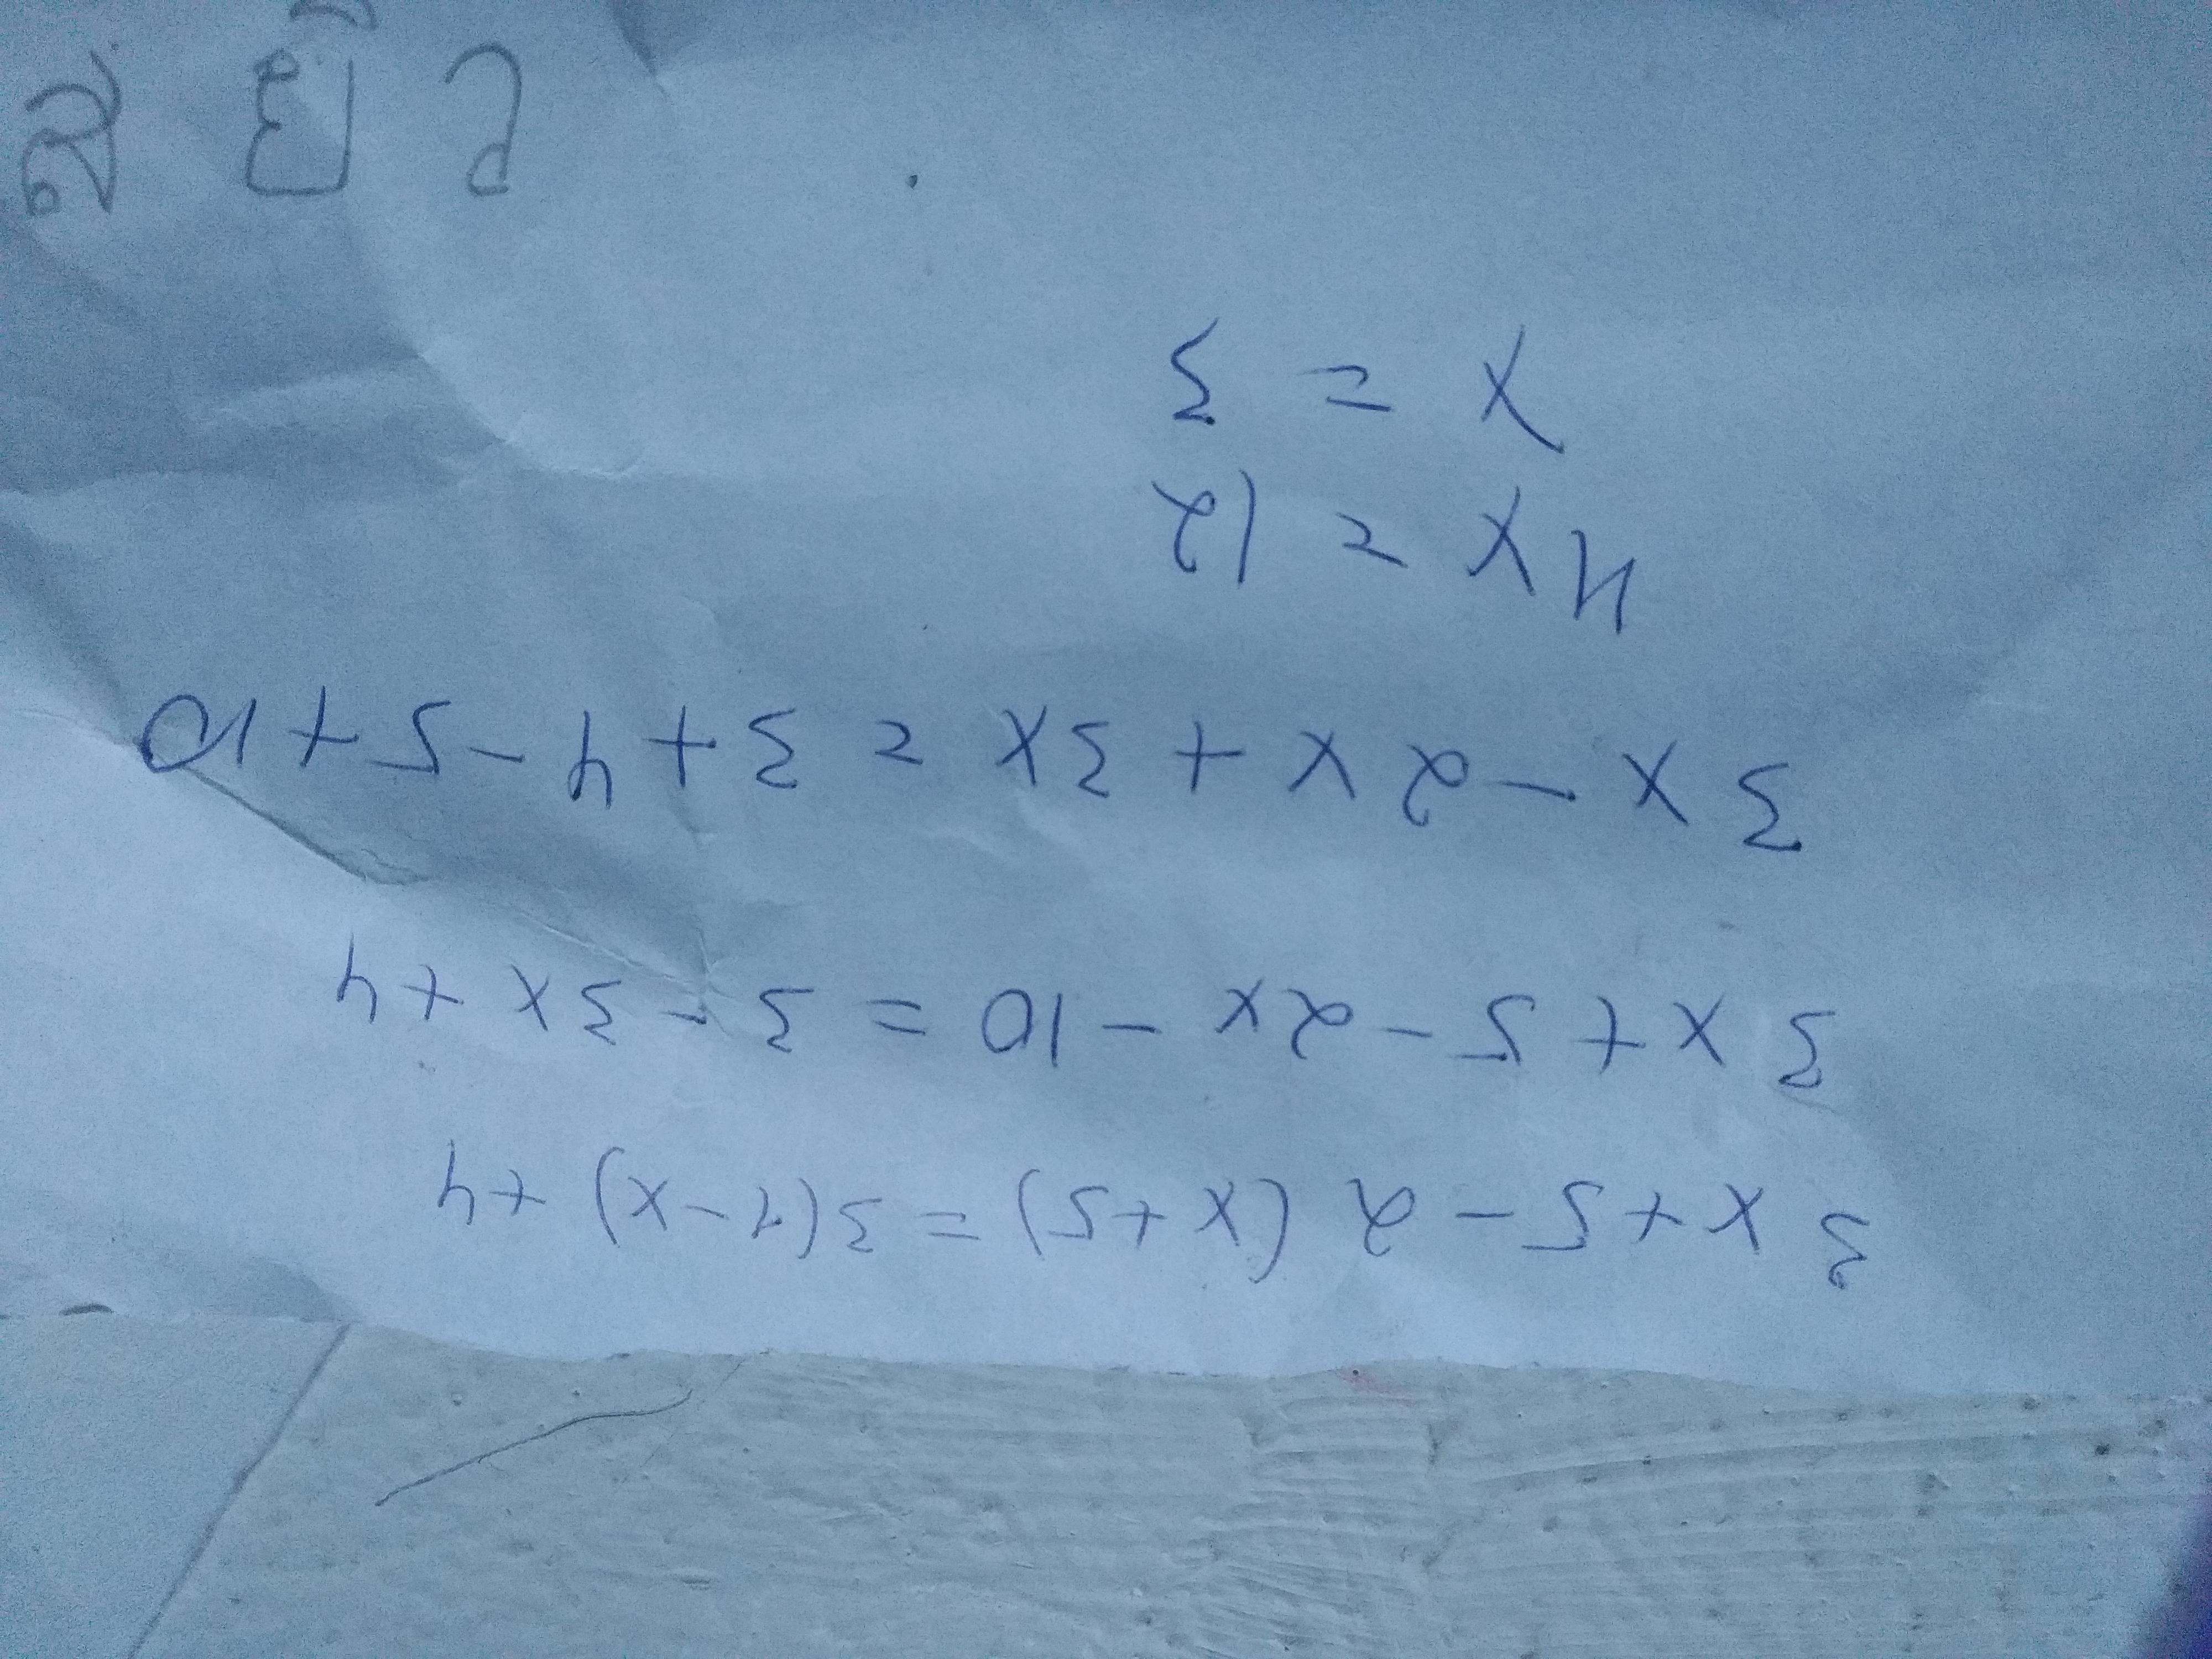 3x+5-2(x+5)=3(1-x)+4
3x+5-2x-10=3-3x+4
3x-2x+3x=3+4-5+10
4x=12
x=3